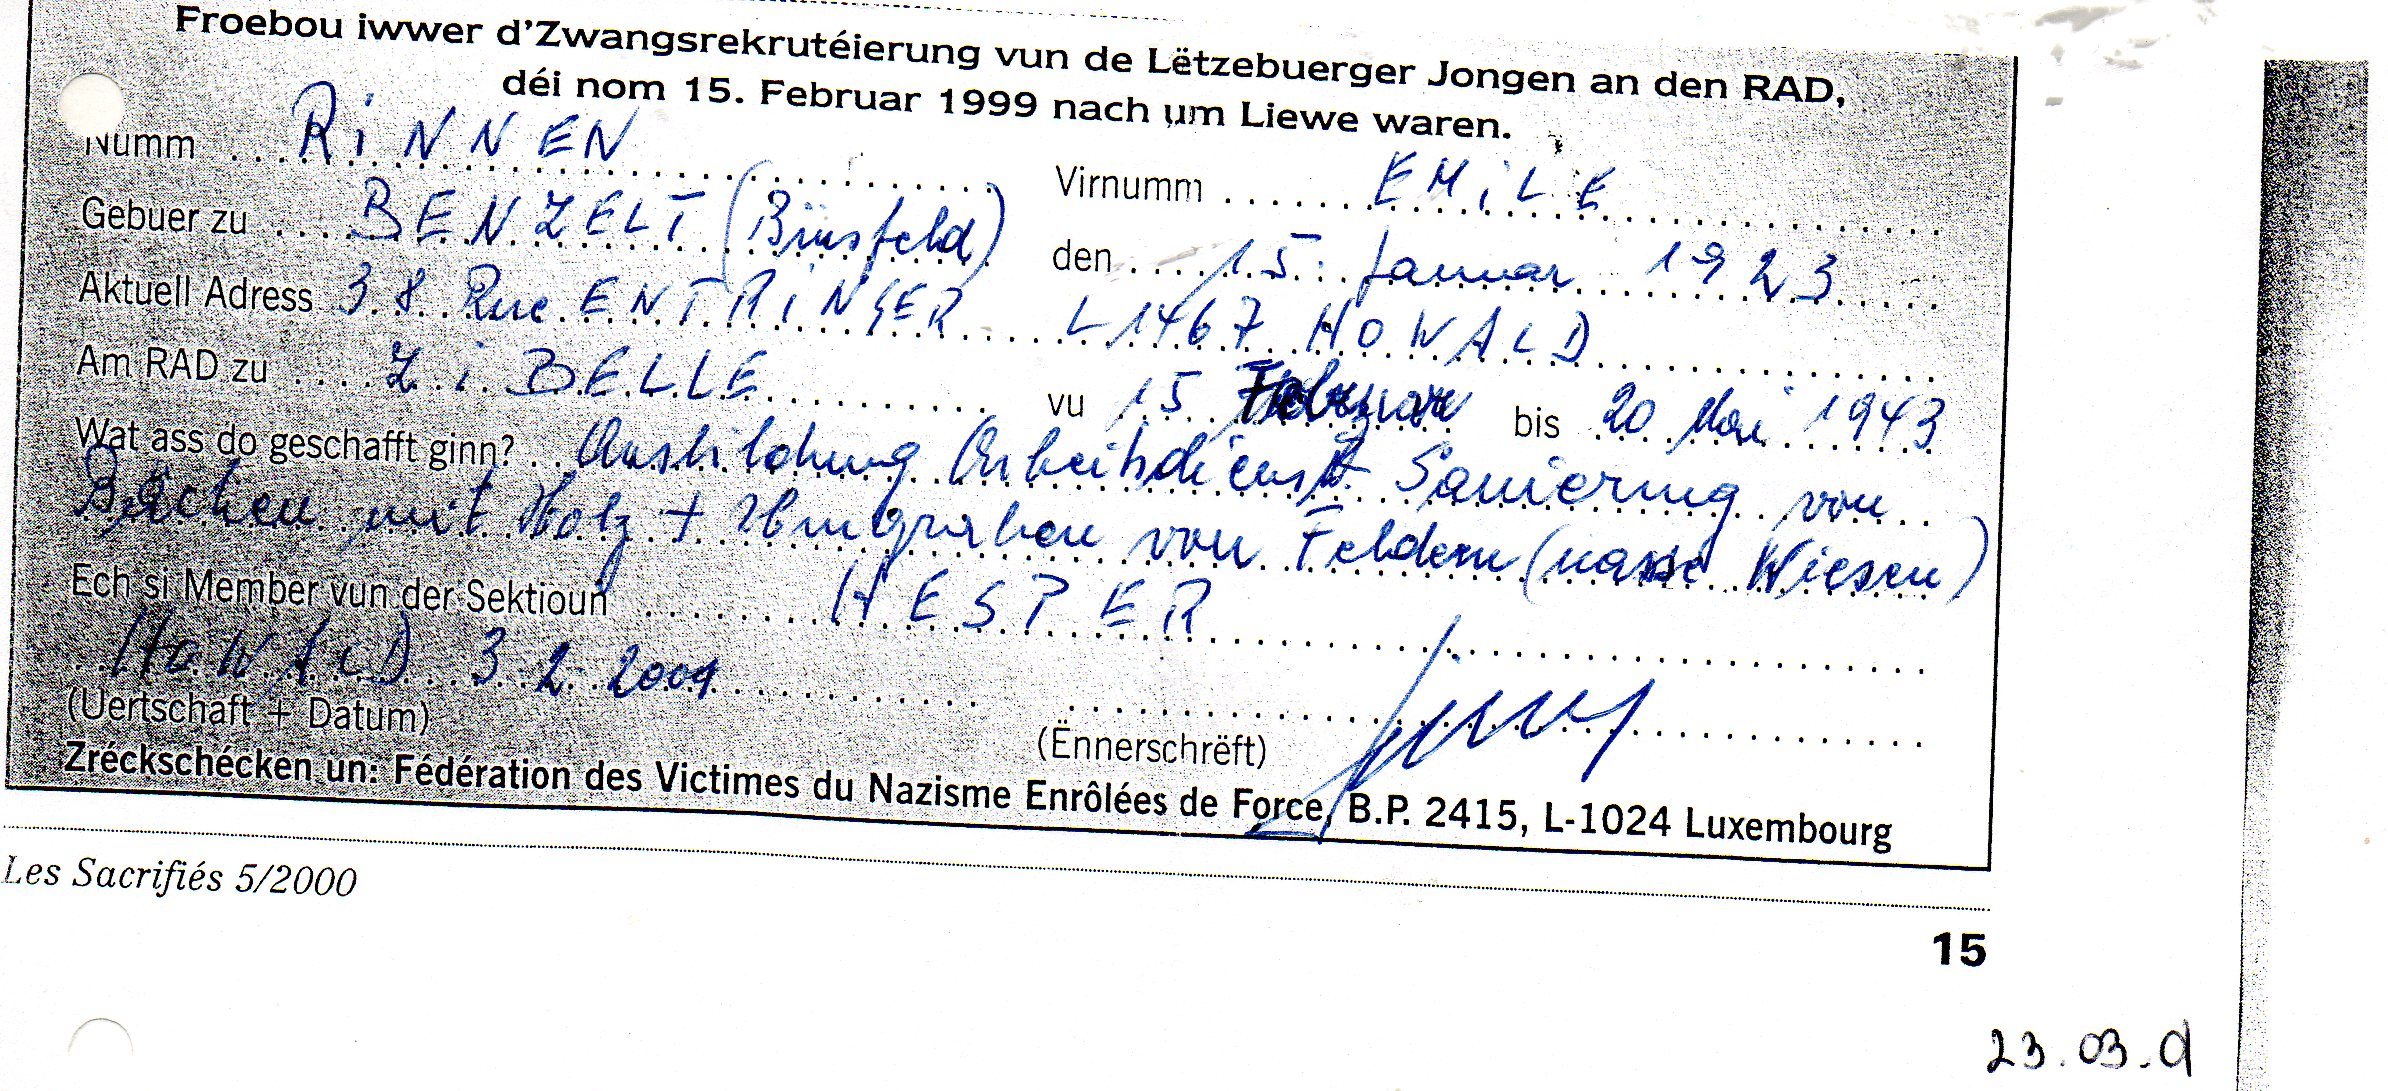 Froebou iwwer d'Zwangsrekrutéierung vun de Lëtzebuerger Jongen an den RAD,
déi nom 15. Februar 1999 nach um Liewe waren.
Numm RiNNEN Virnumm EMiLE
Gebuer zu BENZELT (Binsfeld) den 15. Januar 1923
Aktuell Adress 38 Rue ENTRiNGER L 1467 HOWALD
Am RAD zu ZiBELLE vu 15 Februar bis 20 Mai 1943
Wat ass do geschafft ginn? Ausbildung Arbeitsdienst Sanierung von
Bächen mit Holz + Umgraben von Feldern (nasse Wiesen)
Ech si Member vun der Sektioun HESPER
HOWALD 3 2 2001
(Uertschaft + Datum) (Ënnerschrëft)
Zréckschécken un: Fédération des Victimes du Nazisme Enrôlées de Force, B.P. 2415, L-1024 Luxembourg
Les Sacrifiés 5/2000
15
23.03.